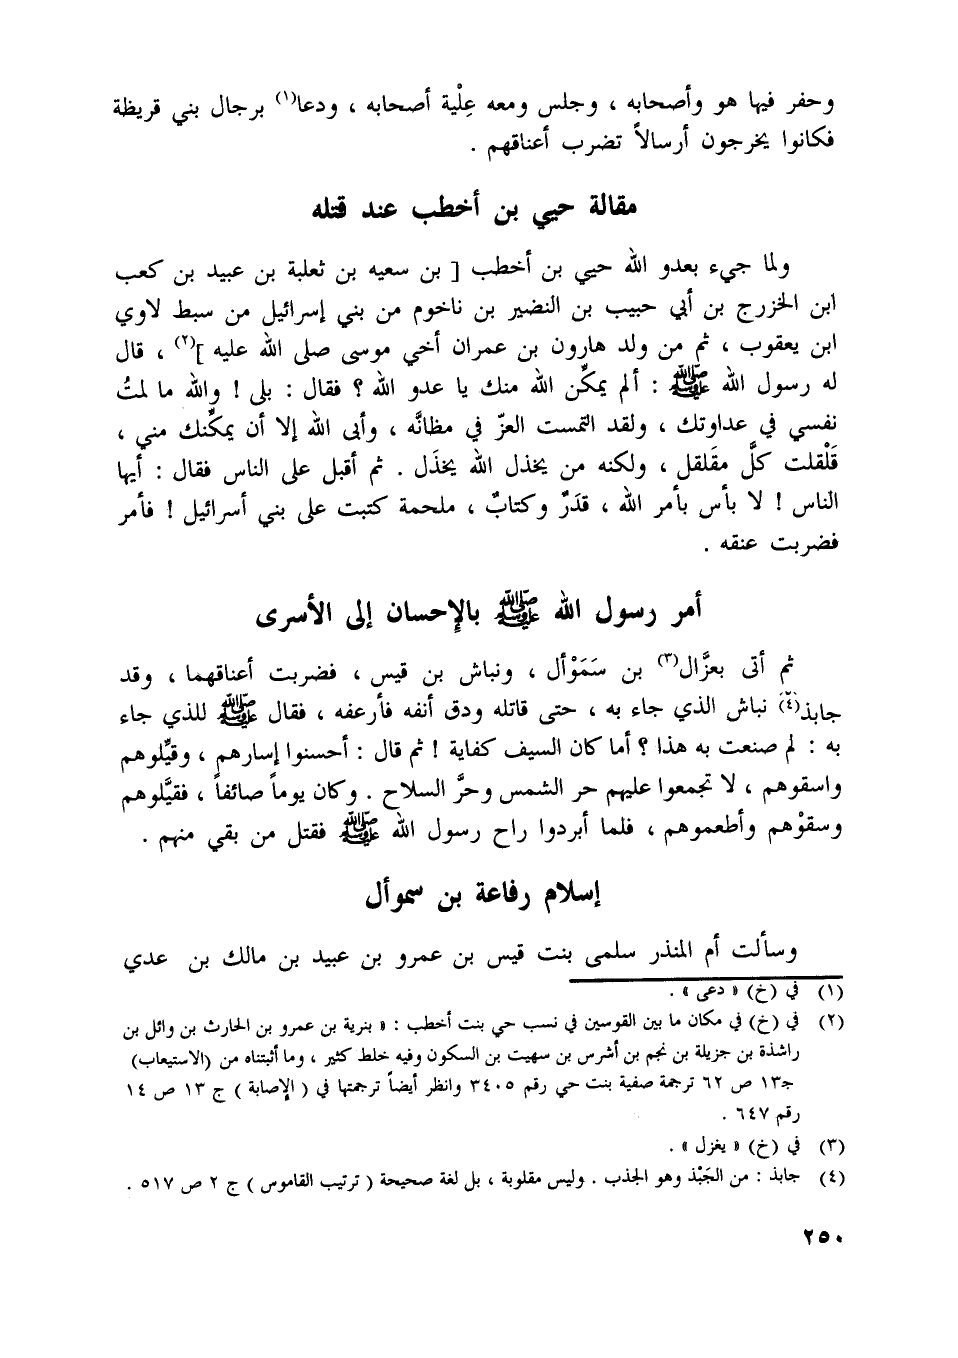 وحفر فيها هو وأصحابه ، وجلس ومعه عِلْية أصحابه ، ودعا(١) برجال بني قريظة
فكانوا يخرجون أرسالاً تضرب أعناقهم .
مقالة حيي بن أخطب عند قتله
ولما جيء بعدو الله حيي بن أخطب [ بن سعيه بن ثعلبة بن عبيد بن كعب
ابن الخزرج بن أبي حبيب بن النضير بن ناخوم من بني إسرائيل من سبط لاوي
ابن يعقوب ، ثم من ولد هارون بن عمران أخي موسى صلى الله عليه ](٢) ، قال
له رسول الله ﷺ : ألم يمكِّن الله منك يا عدو الله ؟ فقال : بلى ! والله ما لمتُ
نفسي في عداوتك ، ولقد التمست العزّ في مظانَّه ، وأبى الله إلا أن يمكِّنك مني ،
قَلْقلت كلَّ مقَلقل ، ولكنه من يخذل الله يخذَل . ثم أقبل على الناس فقال : أيها
الناس ! لا بأس بأمر الله ، قدَرٌ وكتابٌ ، ملحمة كتبت على بني أسرائيل ! فأمر
فضربت عنقه .
أمر رسول الله ﷺ بالإحسان إلى الأسرى
ثم أتى بعزَّال(٣) بن سَمَوْأل ، ونباش بن قيس ، فضربت أعناقهما ، وقد
جابذ(٤) نباش الذي جاء به ، حتى قاتله ودق أنفه فأرعفه ، فقال ﷺ للذي جاء
به : لم صنعت به هذا ؟ أما كان السيف كفاية ! ثم قال : أحسنوا إسارهم ، وقيِّلوهم
واسقوهم ، لا تجمعوا عليهم حر الشمس وحرَّ السلاح . وكان يوماً صائفاً ، فقيَّلوهم
وسقوْهم وأطعموهم ، فلما أبردوا راح رسول الله ﷺ فقتل من بقي منهم .
إسلام رفاعة بن سموأل
وسألت أم المنذر سلمى بنت قيس بن عمرو بن عبيد بن مالك بن عدي
(١) في (خ) « دعى » .
(٢) في (خ) في مكان ما بين القوسين في نسب حي بنت أخطب : « بنرية بن عمرو بن الحارث بن وائل بن
راشذة بن جزيلة بن نجم بن أشرس بن سهيت بن السكون وفيه خلط كثير ، وما أثبتناه من (الاستيعاب)
جـ١٣ ص ٦٢ ترجمة صفية بنت حي رقم ٣٤٠٥ وانظر أيضاً ترجمتها في ( الإصابة ) ج ١٣ ص ١٤
رقم ٦٤٧ .
(٣) في (خ) « يغزل » .
(٤) جابذ : من الجَبْذ وهو الجذب . وليس مقلوبة ، بل لغة صحيحة ( ترتيب القاموس ) ج ٢ ص ٥١٧ .
٢٥٠